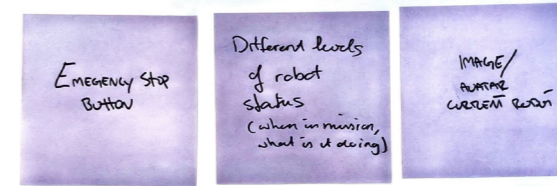 EMEGENCY STOP
BUTTON
Different levels
of robot
status
(when in mission,
what is it doing)
IMAGE/
AVATAR
CURRENT ROBOT